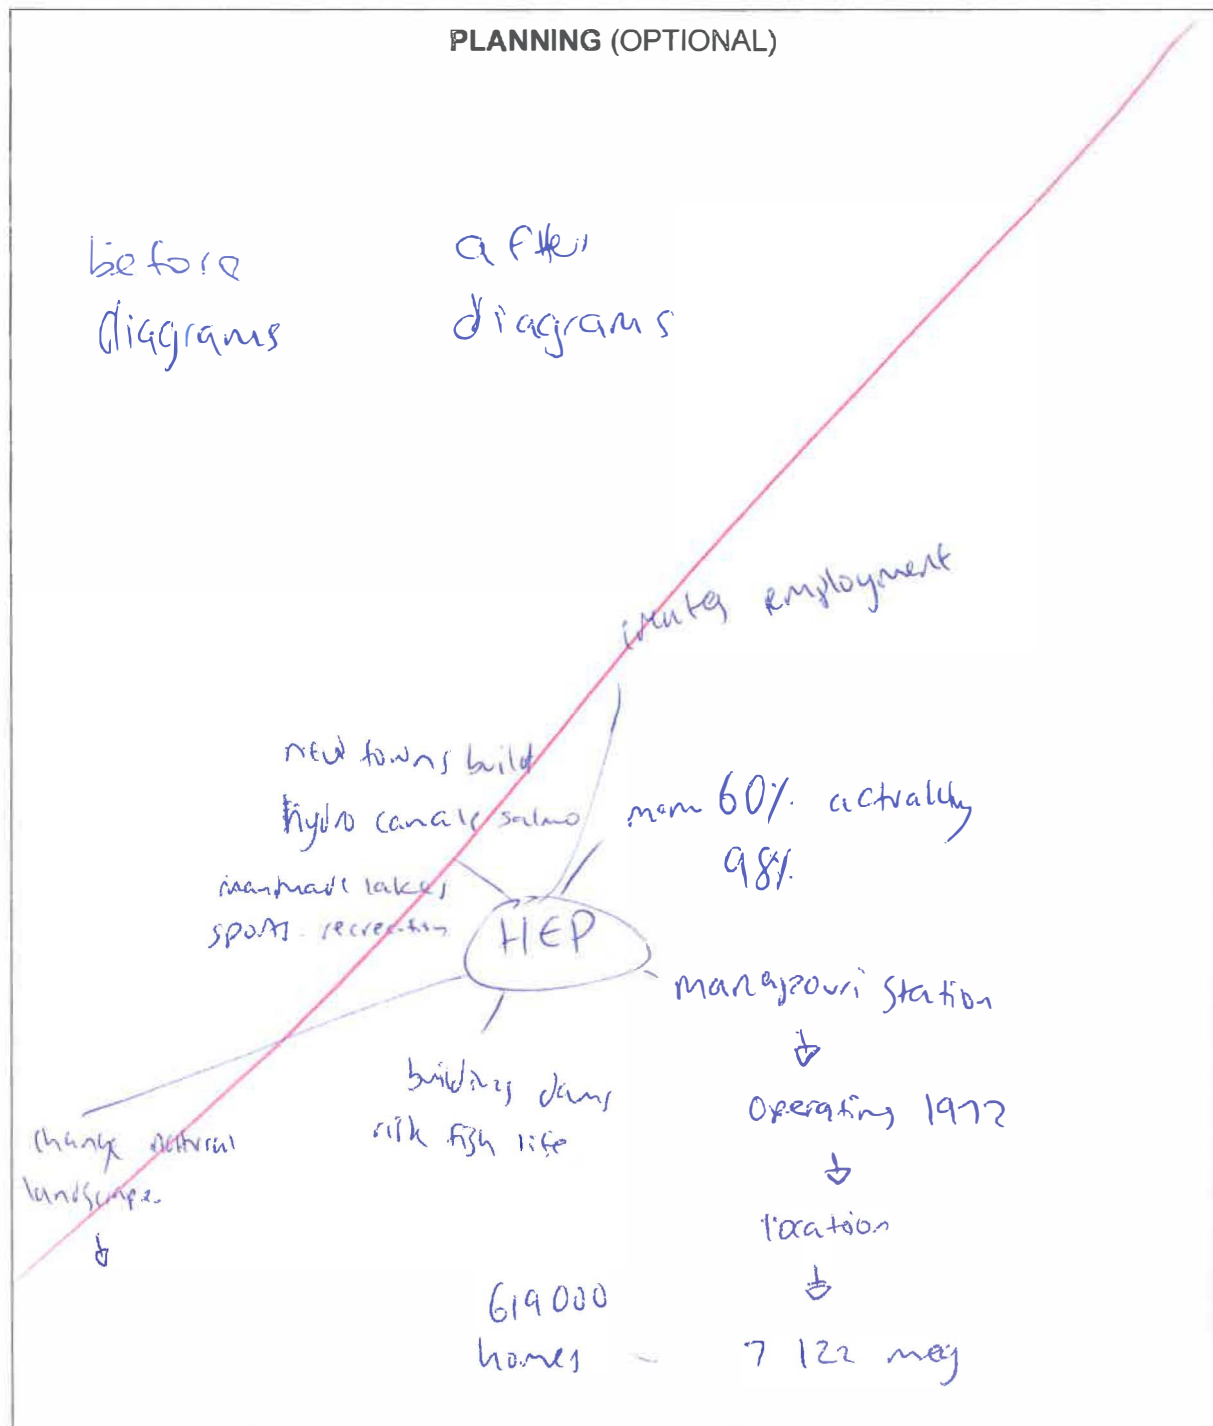 PLANNING (OPTIONAL)
before
diagrams
after
diagrams
employment
new towns build
hydro canals salmo
manmade lakes
sports recreation
60% actually
98%
HEP
manapouri station
operating 1972
location
7 122 meg
619000
homes -
buildings dams
risk fish life
change natural
landscape.